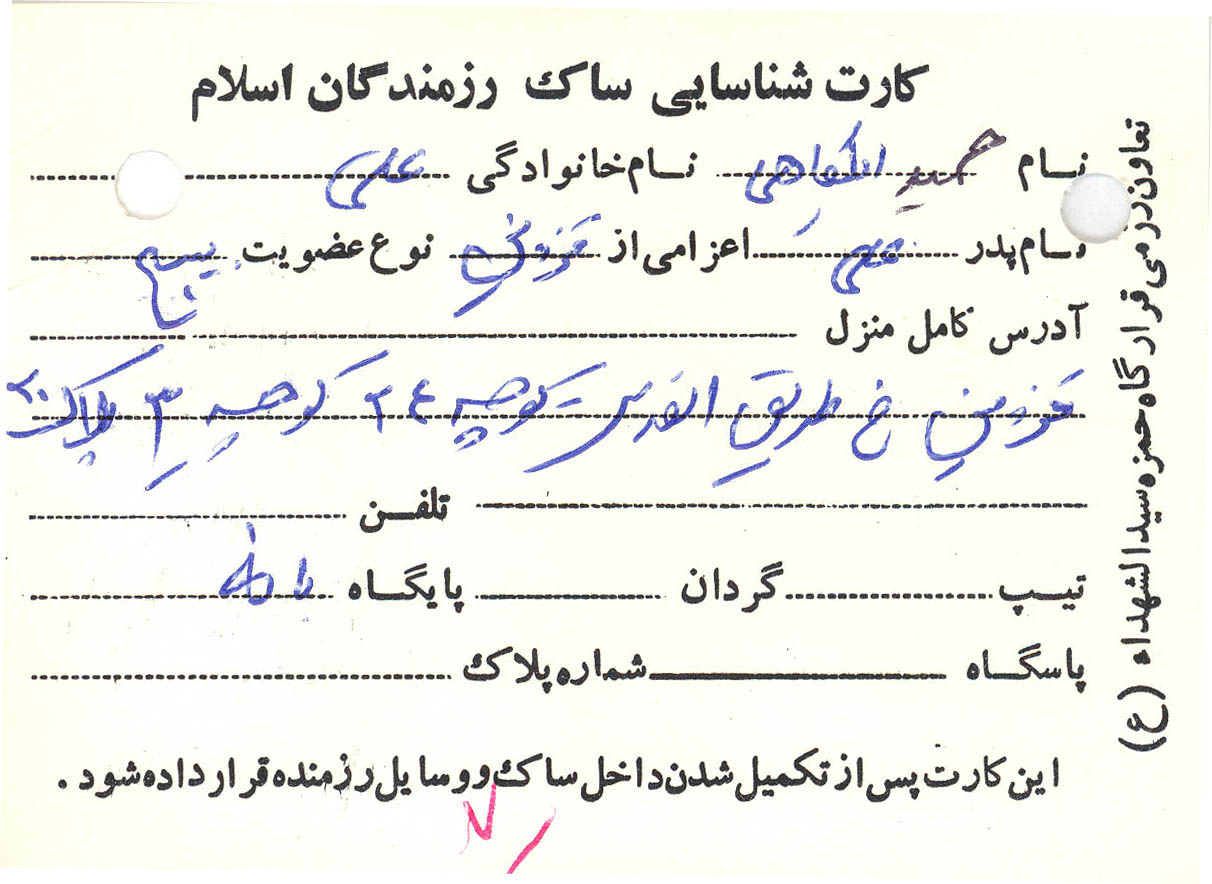 کارت شناسایی ساک رزمندگان اسلام
نام حمید نام خانوادگی علی
نام پدر علی اعزامی از قزوین نوع عضویت بسیج
آدرس کامل منزل
قزوین خ طریق القدس - کوچه ۲۴ کوچه ۳ پلاک ۲۰
تلفن
تیپ گردان پایگاه بانه
پاسگاه شماره پلاک
این کارت پس از تکمیل شدن داخل ساک و وسایل رزمنده قرار داده شود .
تعاون رزمی قرارگاه حمزه سیدالشهداء (ع)